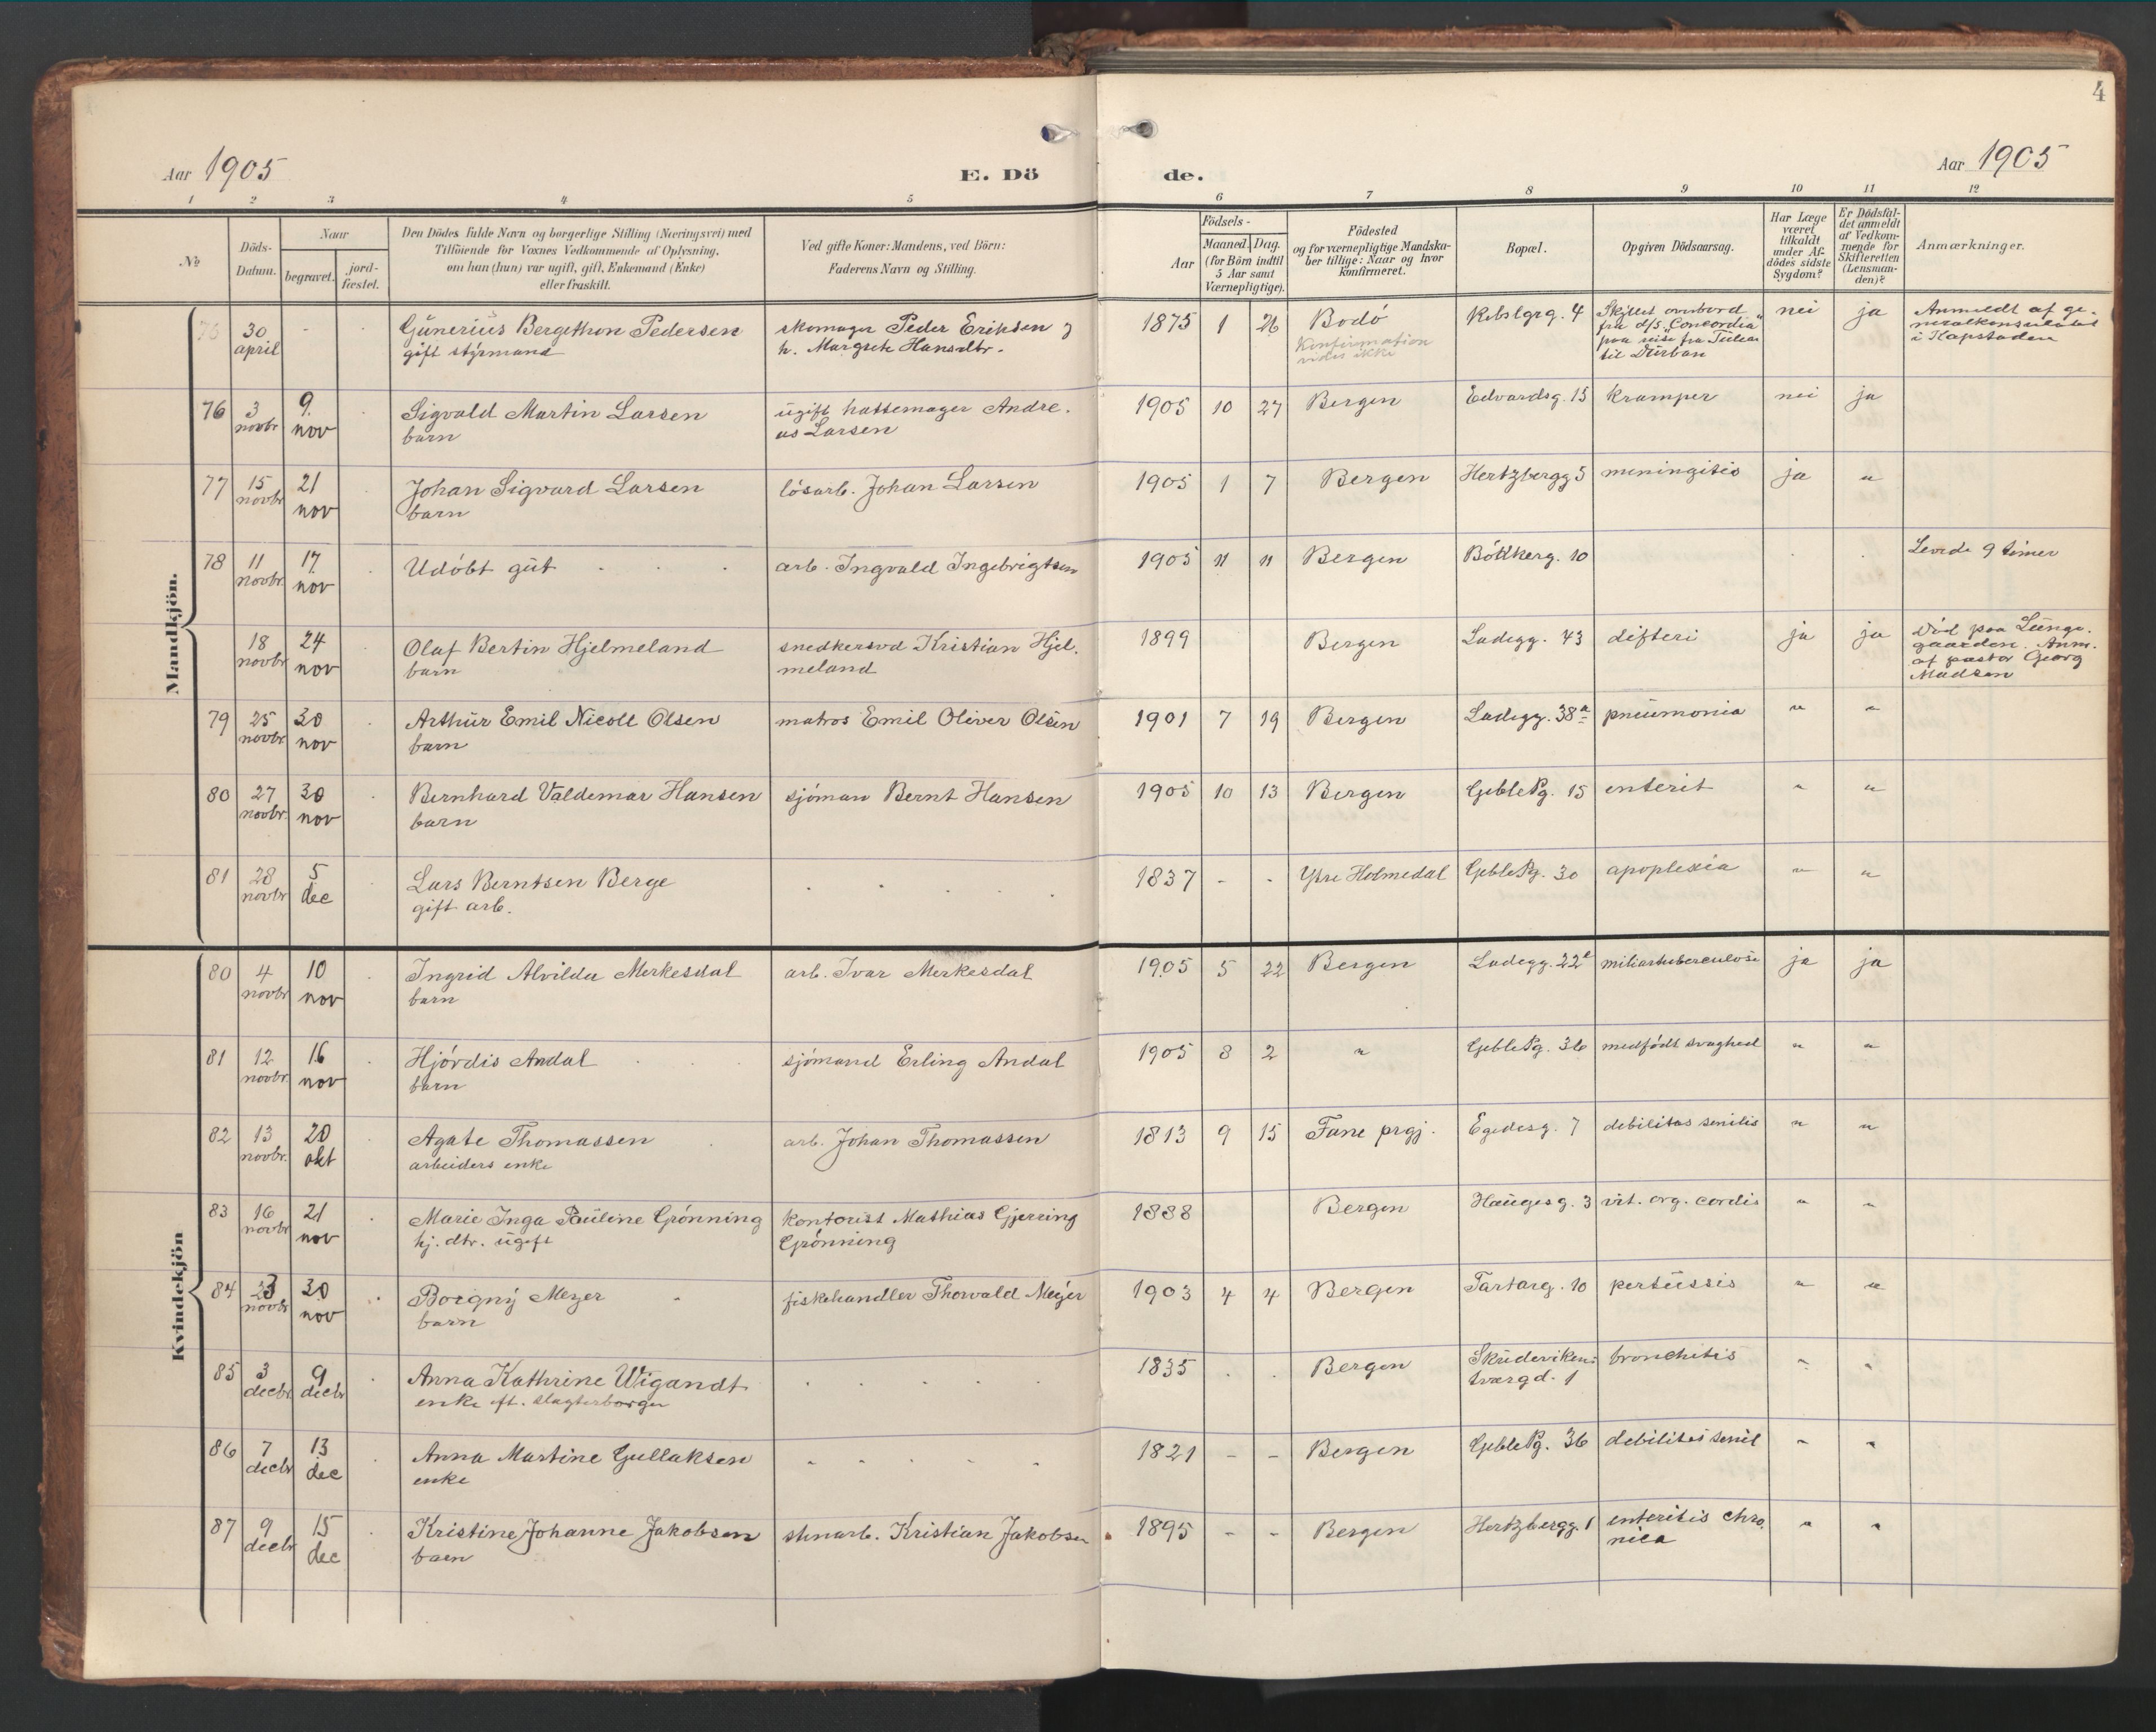 4
Aar 1905
E. Dö
de.
Aar 1905
1 2 3 4 5 6 7 8 9 10 11 12
No
Döds-
Datum.
Naar
begravet.
jord-
fæstet.
Den Dödes fulde Navn og borgerlige Stilling (Næringsvei) med
Tilföiende for Voxnes Vedkommende af Oplysning,
om han (hun) var ugift, gift, Enkemand (Enke)
eller fraskilt.
Ved gifte Koner: Mandens, ved Börn:
Faderens Navn og Stilling.
Födsels-
Aar
Maaned. Dag.
(for Börn indtil
5 Aar samt
Værnepligtige).
Födested
og for værnepligtige Mandska-
ber tillige: Naar og hvor
Konfirmeret.
Bopæl.
Opgiven Dödsaarsag.
Har Læge
været
tilkaldt
under Af-
dödes sidste
Sygdom?
Er Dödsfal-
det anmeldt
af Vedkom-
mende for
Skifteretten
(Lensman-
den)?
Anmærkninger.
Mandkjön.
75 30 - · Gunerius Bergithon Pedersen skomager Peder Eriksen 1875 1 26 Bodó 4 Skyllet overbord nei ja Anmeldt af ge-
april gift styrmand h. Margrete Hansdtr. Konfirmation fra d/s. "Concordia" neralkonsulatet
vides ikke paa reise fra i Kapstaden
til Durban
76 3 9. Sigvald Martin Larsen ugift hattemager Andre- 1905 10 27 Bergen Edvardsg. 15 kramper nei ja
novbr nov barn as Larsen
77 15 21 Johan Sigvard Larsen lósarb. Johan Larsen 1905 1 7 Bergen Hertzbergg 5 meningitis ja "
novbr nov barn
78 11 17. Udóbt gut arb. Ingvald Ingebrigtsen 1905 11 11 Bergen Bókkerg. 10 Levede 9 timer
novbr. nov
18 24 Olaf Bertin Hjelmeland snedkersvd Kristian Hjel- 1899 Bergen Ladegg. 43 difteri ja ja Död paa Lunge-
novbr nov barn meland gaarden. Anm.
af pastor Georg
Madsen
79 25 30 Arthur Emil Nicoll Olsen matros Emil Oliver Olsen 1901 7 19 Bergen Ladegg. 38a pneumonia " "
novbr. nov barn
80 27 30 Bernhard Valdemar Hansen sjóman Bernt Hansen 1905 10 13 Bergen Geble Pg. 15 enterit " "
novbr. nov barn
81 28 5 Lars Berntsen Berge 1837 - - Ytre Holmedal Geble Pg. 30 apoplexia " "
novbr dec gift arb.
Kvindekjön
80 4 10 Ingrid Alvilda Merkesdal arb. Ivar Merkesdal 1905 5 22 Bergen Ladegg. 22a miliartuberculose ja ja
novbr nov barn
81 12 16 Hjórdis Andal sjómand Erling Andal 1905 8 2 " Geble Pg. 36 medfódt svaghed " "
novbr. nov barn
82 13 20 Agate Thomassen arb. Johan Thomassen 1813 9 15 Fane prgj. Egedesg. 7 debilitas senilis " "
novbr. okt arbeiders enke
83 16 21 Marie Inga Pauline Grónning kontorist Mathias Gjerring 1888 Bergen Haugesg. 3 vit. org. cordis " "
novbr nov hj. dtr. ugift Grónning
84 23 30 Borgny Meyer fiskehandler Thorvald Meyer 1903 4 4 Bergen Tartarg. 10 pertussis " "
novbr nov barn
85 3 9 Anna Kathrine Wigandt 1835 Bergen Skudeviken- bronchitis " "
decbr decbr enke eft. slagterborger tværgd. 1
86 7 13 Anna Martine Gullaksen 1821 - - Bergen Geble Pg. 36 debilitas senil " "
decbr dec enke
87 9 15 Kristine Johanne Jakobsen stenarb. Kristian Jakobsen 1895 - - Bergen Hertzbergg. 1 enteritis chro- " "
decbr dec barn nica